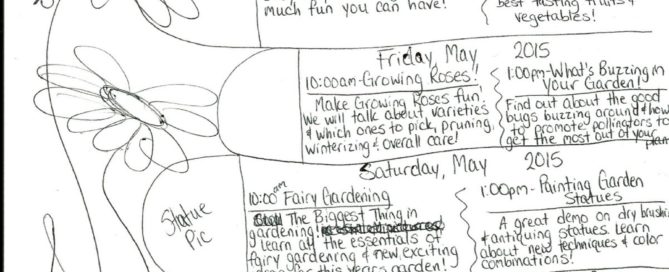 much fun you can have!
best tasting fruits &
vegetables!
Friday, May 2015
10:00am-Growing Roses!
Make Growing Roses fun!
We will talk about varieties
& which ones to pick, pruning,
winterizing & overall care!
1:00pm-What's Buzzing in
Your Garden!
Find out about the good
bugs buzzing around & how
to promote pollinators to
get the most out of your
plants
Saturday, May 2015
Statue
Pic
10:00am Fairy Gardening
The Biggest Thing in
gardening!
Learn all the essentials of
fairy gardening & new, exciting
for this years garden!
1:00pm-Painting Garden
Statues
A great demo on dry brushing
& antiquing statues. Learn
about new techniques & color
combinations!